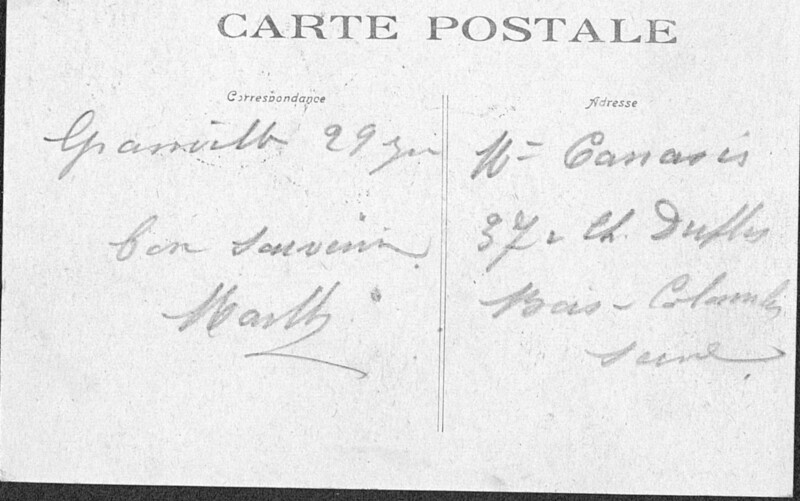 CARTE POSTALE
Correspondance
Granville 29
bon souvenir
Marth
Adresse
37 r Ch. Duflos
Bois-Colombes
Seine